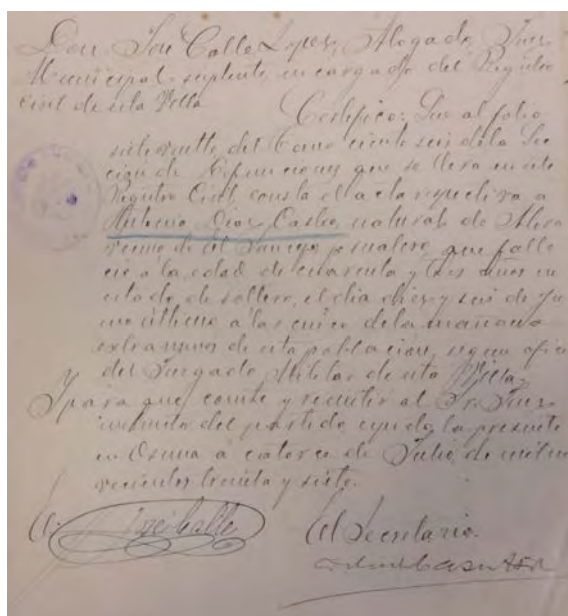 Don José Calle Lopez, Abogado, Juez
Municipal suplente encargado del Registro
Civil de esta Villa
Certifico: Que al folio
siete vuelto del tomo ciento seis de la Sec
cion de Defunciones que se lleva en este
Registro Civil, consta el acta respectiva a
Antonio Diaz Castro, natural de
vecino de jornalero, que falle
ció a la edad de cuarenta y tres años en
estado de soltero, el dia diez y seis de Ju
nio último a las cinco de la mañana
extramuros de esta poblacion, segun oficio
del Juzgado Militar de esta Villa,
Y para que conste y remitir al Sr. Juez
del partido, expido la presente
en Osuna a catorce de Julio de mil no
vecientos treinta y siete.
José Calle
El Secretario